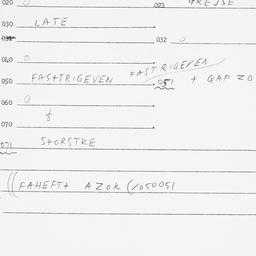 020 0 021
030 LATE
032 0
040 0 FASTRIGEVEN
050 FASTTRIGEVEN 051 + GAP ZO
060 0
070 $
071 STORSTKE
FAHEFT+ AZOK (1050051